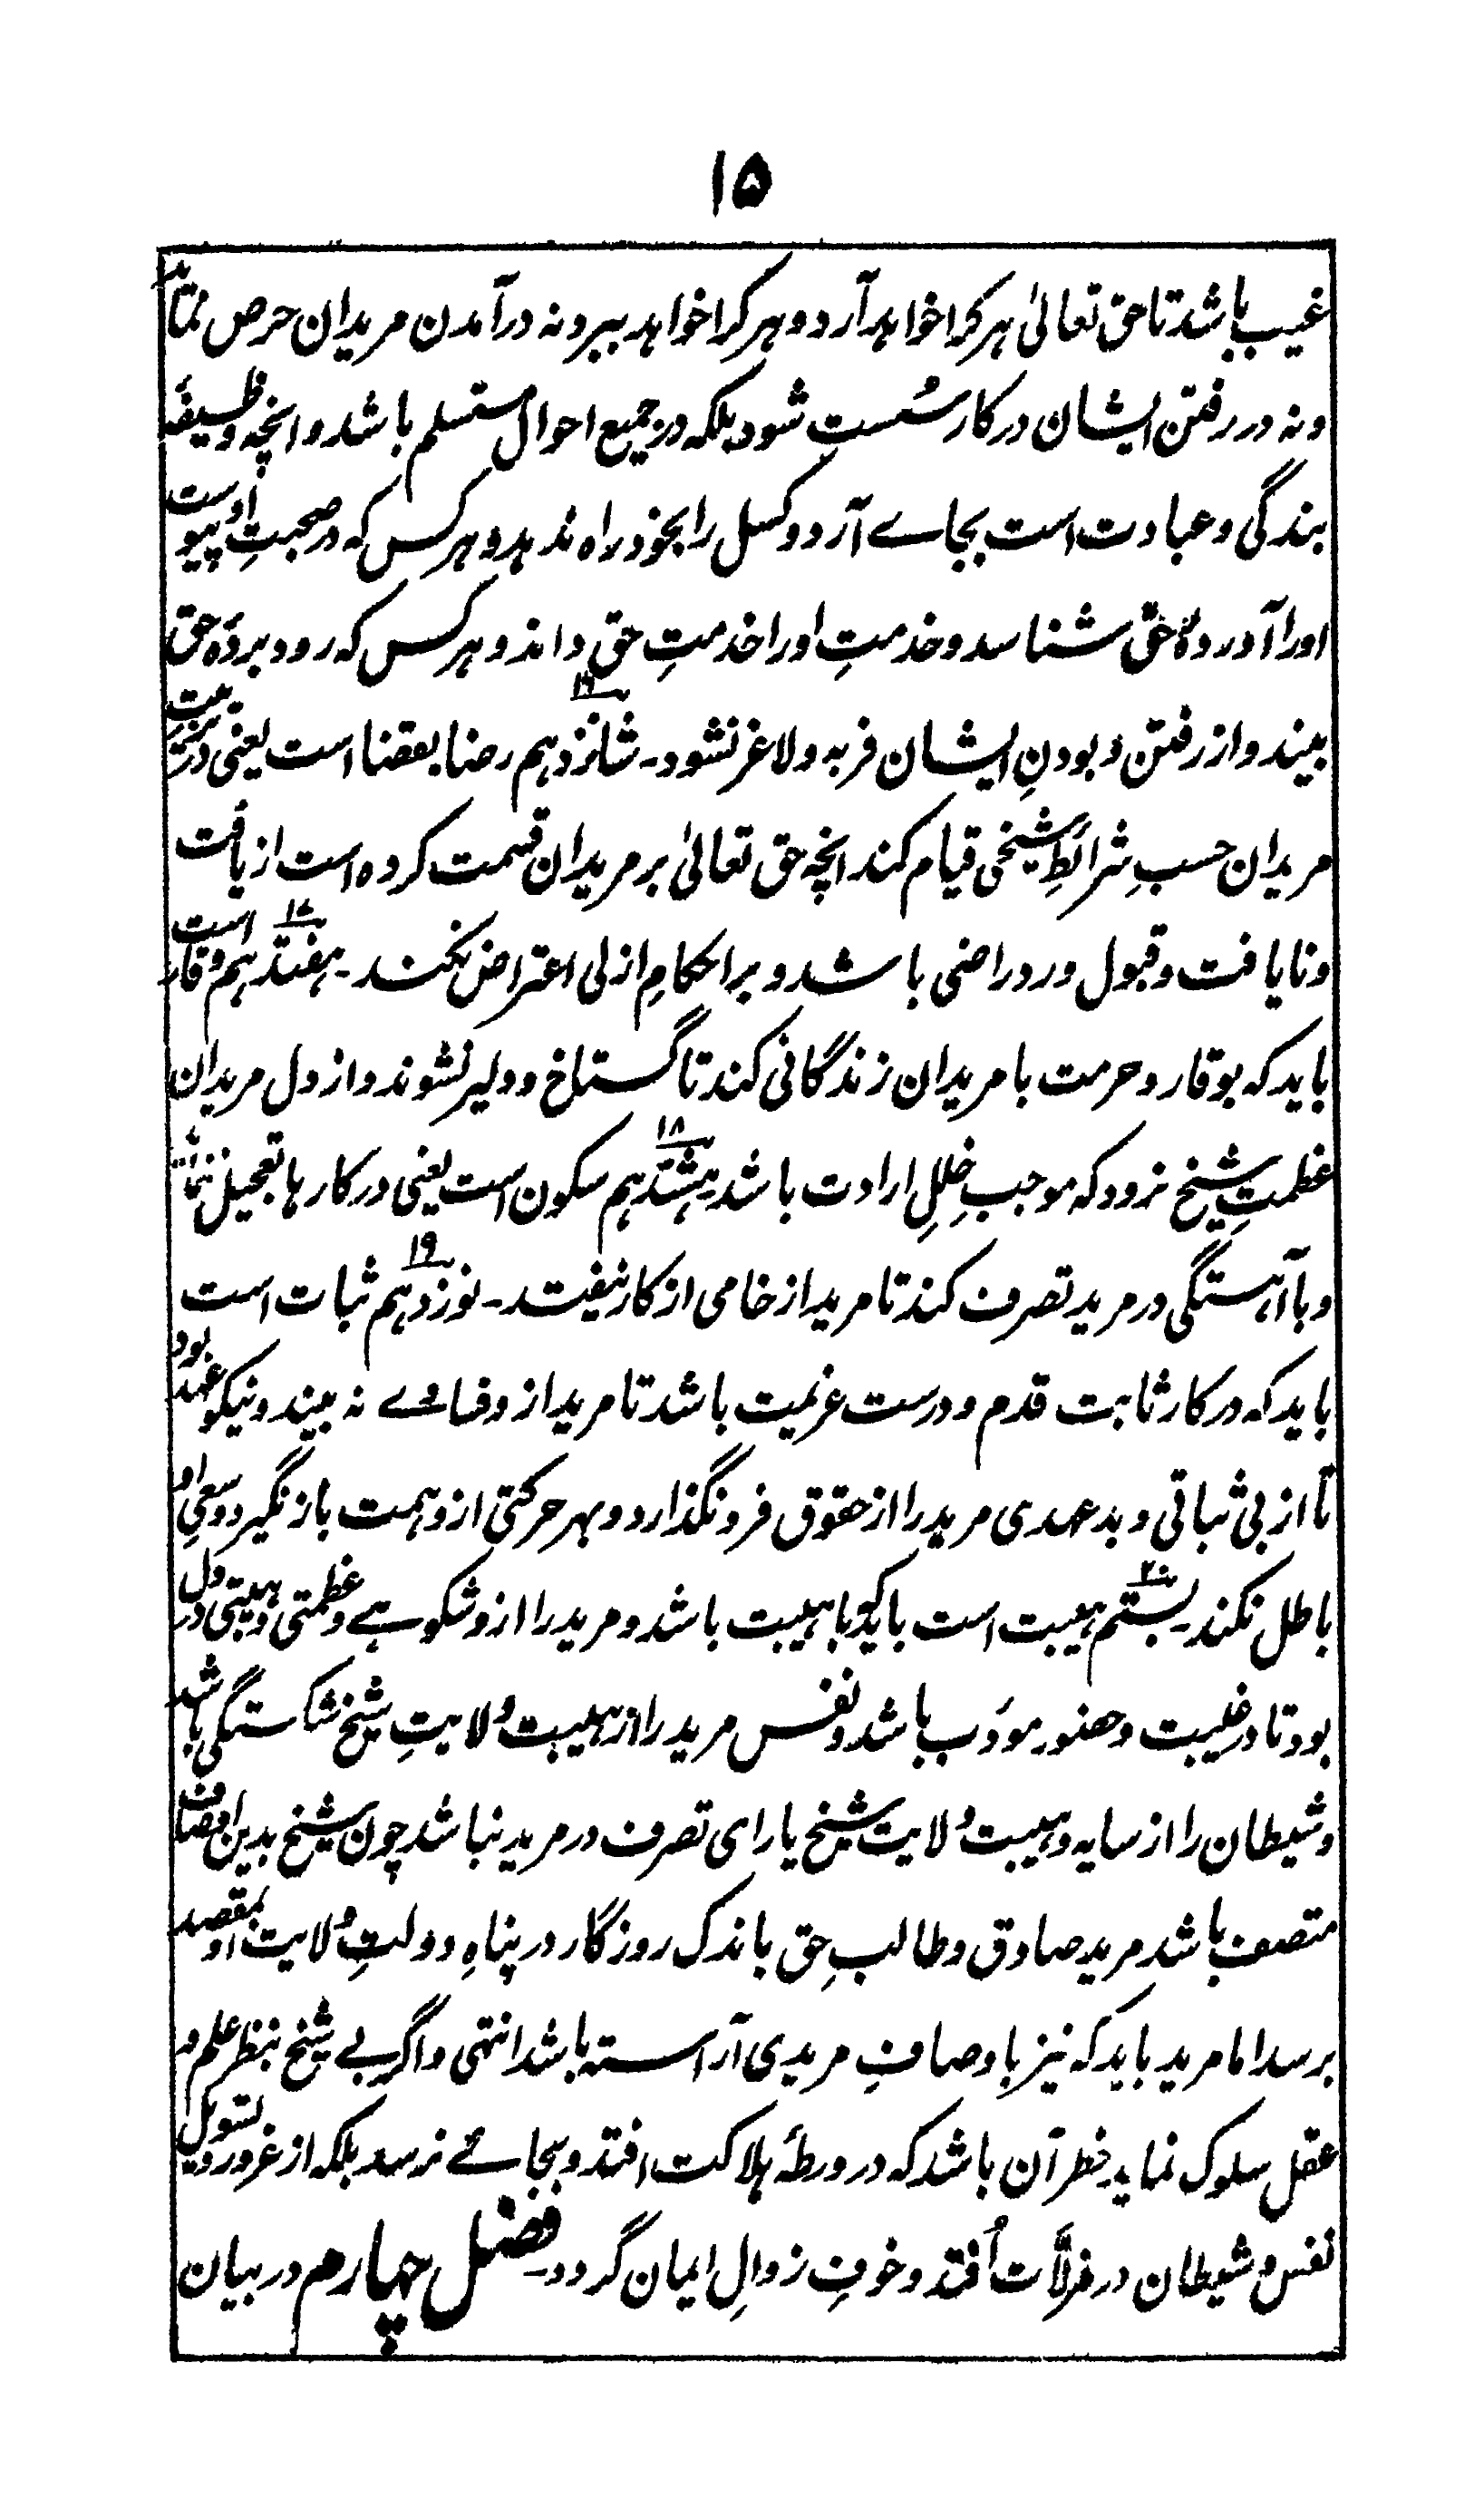 ۱۵
غیب باشد تا حق تعالیٰ ہر کرا خواہد آرد و ہر کرا خواہد ببرد نہ در آمدن مریدان حرص نماید
و نہ در رفتن ایشان در کار سُست شود بلکہ در جمیع احوال مستسلم باشد و انچہ وظیفۂ
بندگی و عبادت است بجاے آرد و کسل را بخود راہ ندہد و ہر کس کہ در صحبتِ او پیوست
اورا آوردۂ حق شناسد و خدمتِ اورا خدمتِ حق داند و ہر کس کہ رود بردۂ حق
بیند و از رفتن و بودنِ ایشان فربہ و لاغر نشود ۔ شانزدہم ۱۶ رضا بقضا است یعنی در تربیت
مریدان حسبِ شرائطِ شیخی قیام کند انچہ حق تعالیٰ بر مریدان قسمت کردہ است از یافت
و نایافت و قبول و رد راضی باشد و بر احکامِ ازلی اعتراض نکند ۔ ہفتدہم ۱۷ وقار است
باید کہ بوقار و حرمت با مریدان زندگانی کند تا گستاخ و دلیر نشوند و از دل مریدان
عظمتِ شیخ نرود کہ موجبِ خللِ ارادت باشد ہشتدہم ۱۸ سکون است یعنی در کارہا تعجیل ننماید
و با آہستگی در مرید تصرف کند تا مرید از خامی از کار نیفتد ۔ نوزدہم ۱۹ ثبات است
باید کہ در کار ثابت قدم و درست عزیمت باشد تا مرید از و فساوے نہ بیند و نیکو عہد بود
تا از بی ثباتی و بد عہدی مرید را از حقوق فرو نگذارد و بہر حرکتی از و ہمت باز نگیرد و سعیِ او
باطل نکند ۔ بستم ۲۰ ہیبت است باید کہ با ہیبت باشد و مرید را از و شکوہے و عظمتی و ہیبتی در دل
بود تا در غیبت و حضور مودّب باشد و نفس مرید را از ہیبت وُلایتِ شیخ شکستگی باشد
و شیطان را از سایہ و ہیبت وُلایت شیخ یارای تصرف در مرید نباشد چون شیخ بدین اوصاف
متصف باشد مرید صادق و طالبِ حق باندک روزگار در پناہِ دولتِ وُلایت او بمقصد
برسد اما مرید باید کہ نیز باوصافِ مریدی آراستہ باشد انتہی و اگر بے شیخ بنظر علم و
عقل سلوک نماید خطر آن باشد کہ در ورطۂ ہلاکت افتد و بجائے نرسد بلکہ از غرور و تسویل
نفس و شیطان در مزلّات اُفتد و خوفِ زوالِ ایمان گردد ۔ فصل چہارم در بیان